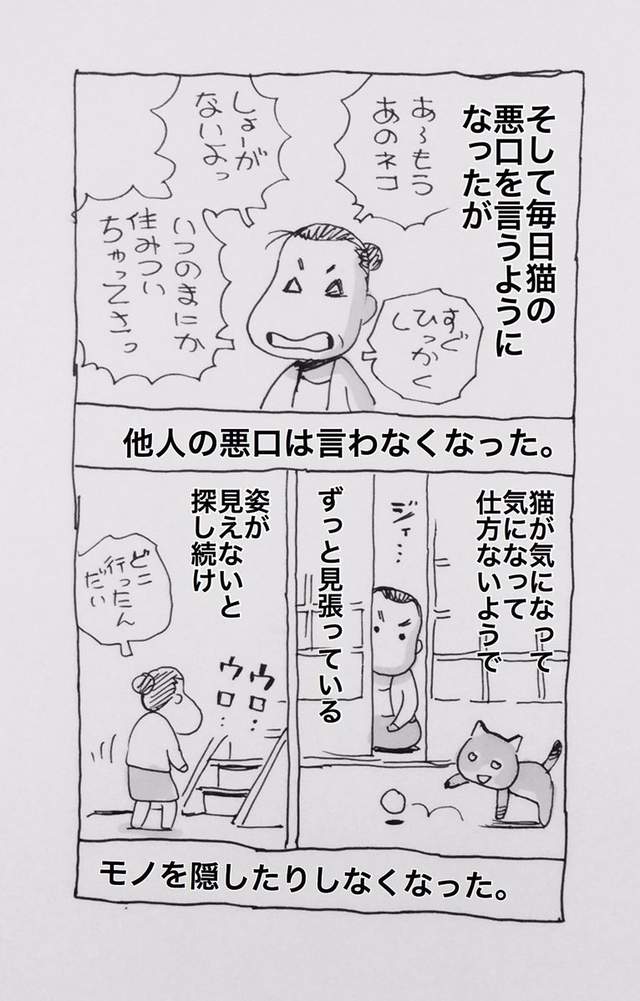 そして毎日猫の
悪口を言うように
なったが
あ〜もう
あのネコ
しょーが
ないよっ
すぐ
ひっかく
し
いつのまにか
住みつい
ちゃってさっ
他人の悪口は言わなくなった。
猫が気になって
気になって
仕方ないようで
ジィ…
ずっと見張っている
姿が
見えないと
探し続け
どこ
行ったん
だい
ウロ…
ウロ…
モノを隠したりしなくなった。